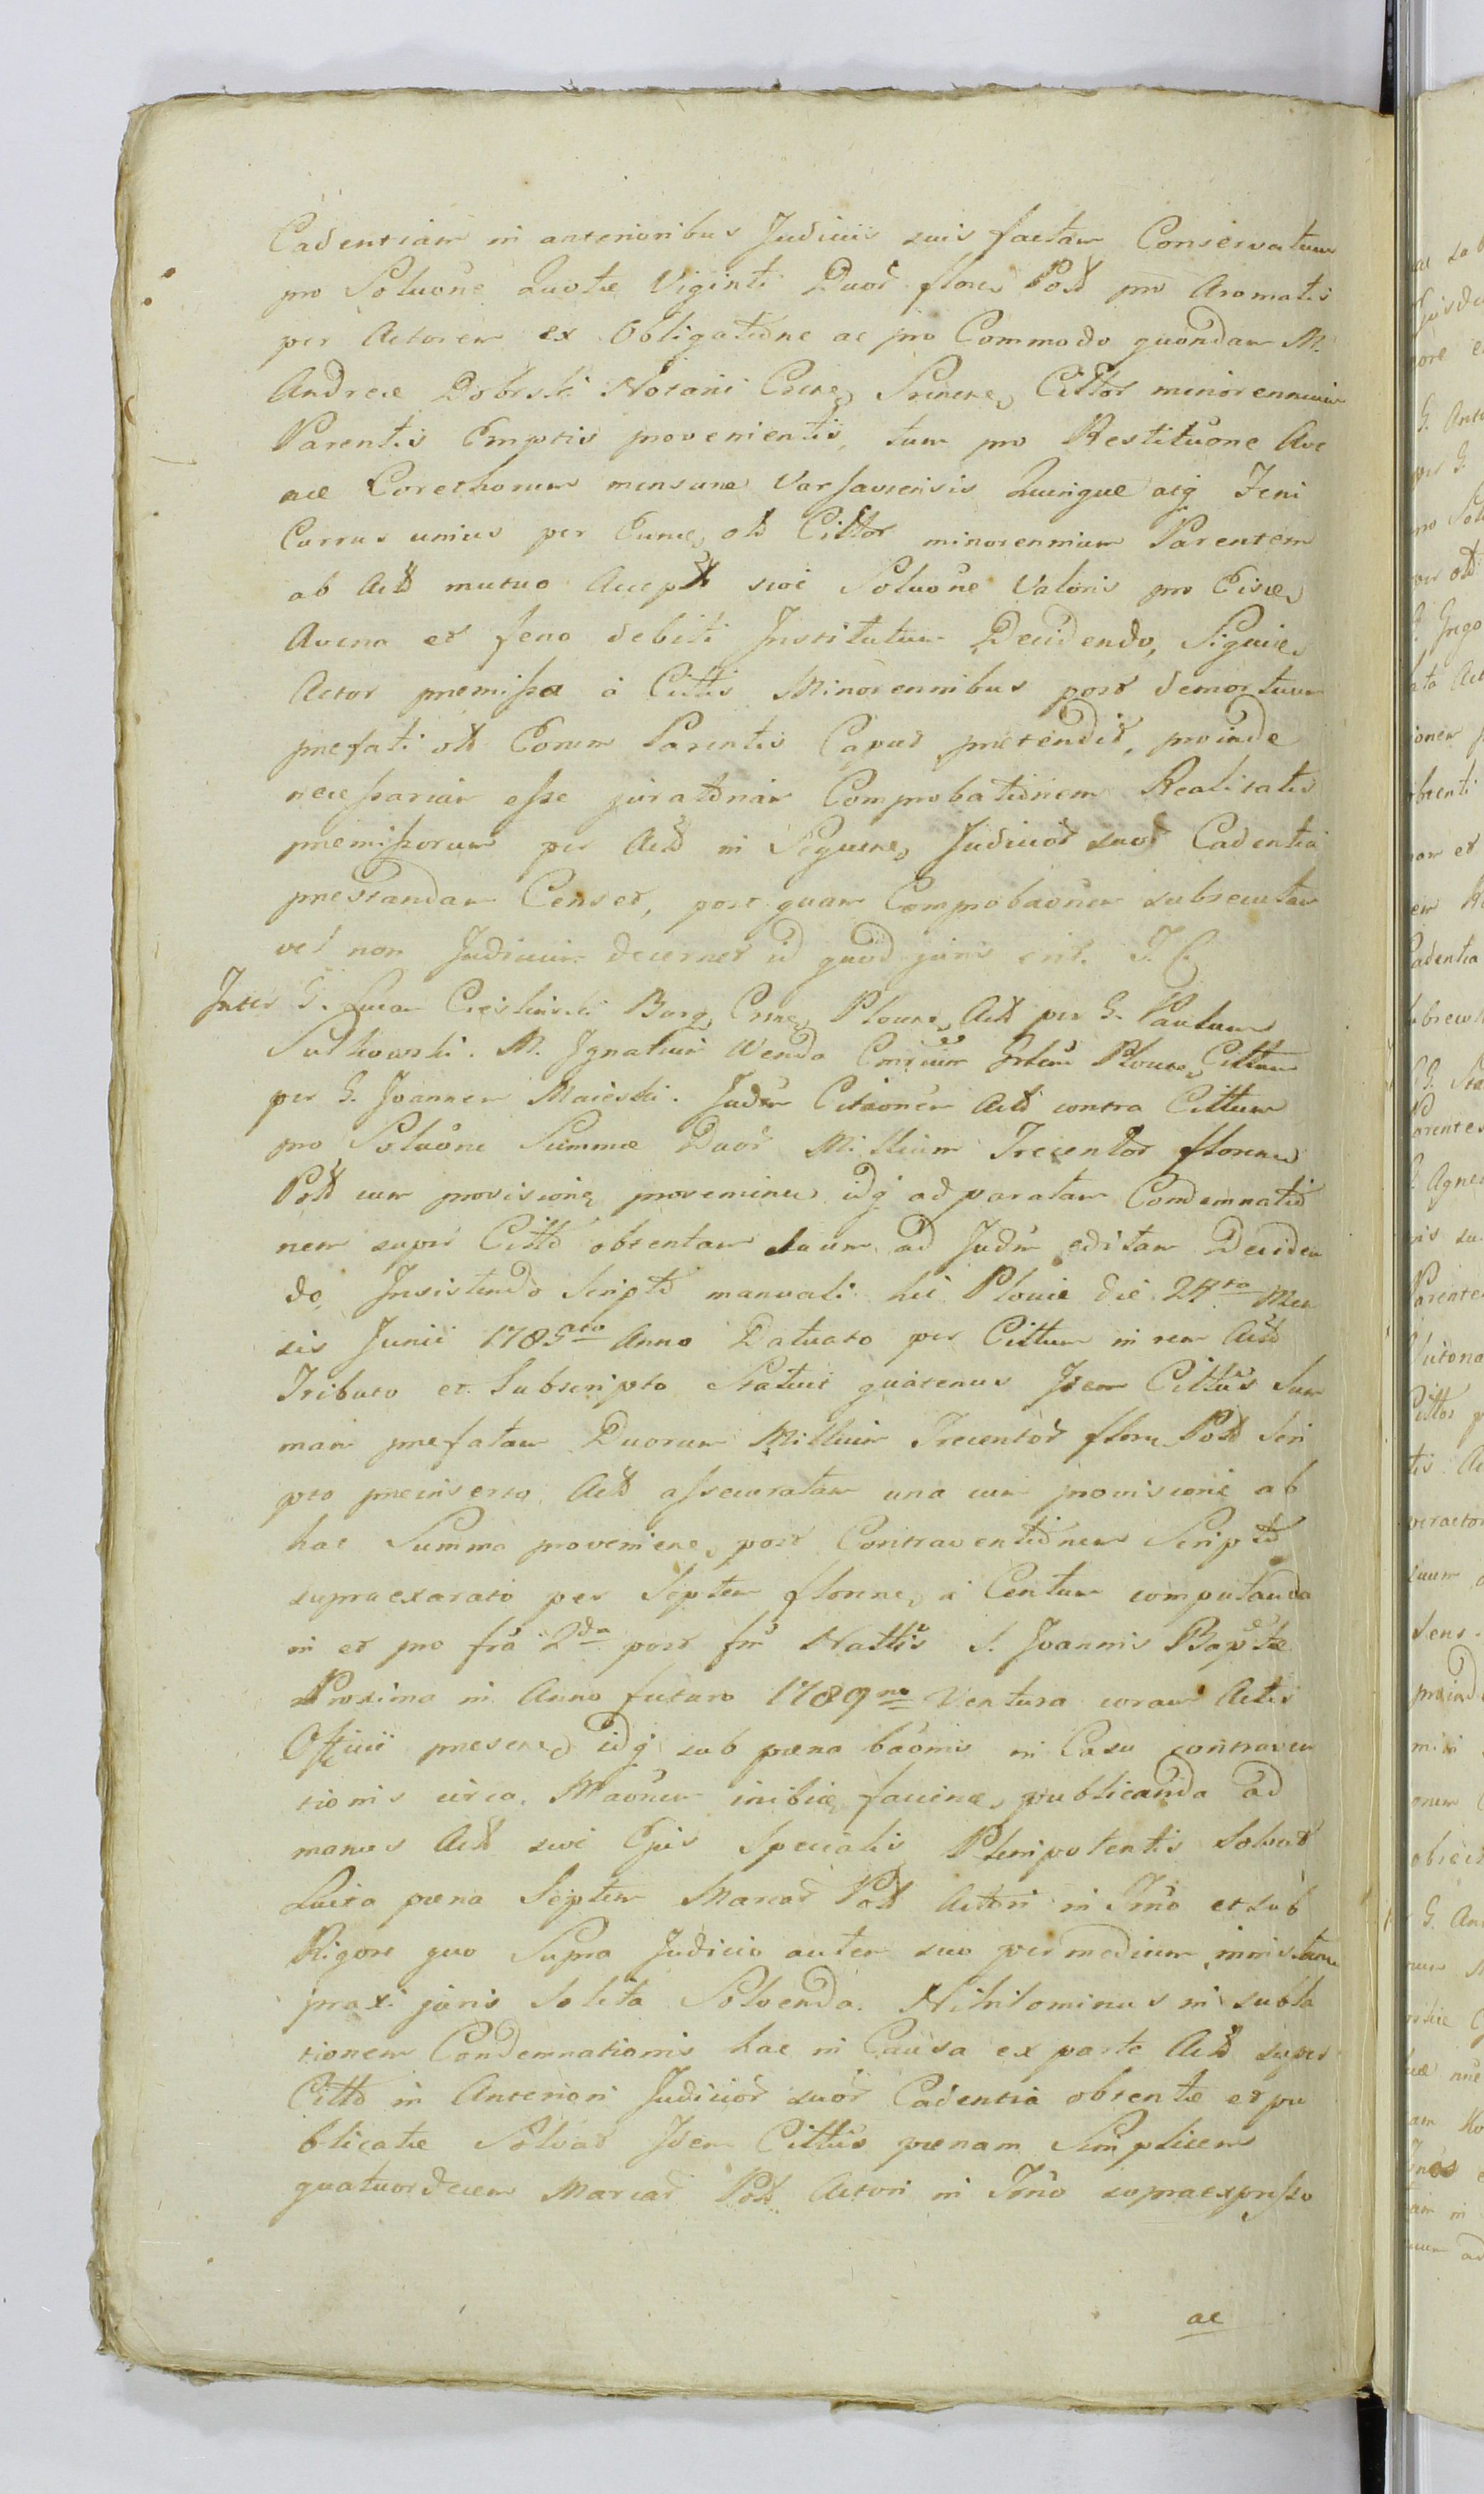 Cadentiam in anterioribus Judiciis suis factam Conservatum
pro Soluõne Quotæ Viginti Duor flores Polł pro Aromatis
per Actorem ex Obligatione ac pro Commodo quondam M.
Andreæ Dobrski Notarii Cittor minorennium
Parentis Emptis provenientis, tum pro Restituõne Ave
næ Corethorum mensuræ Varsaviensis Quinque atq Feni
Currus unius per Eunde olł Cittor minorennium Parentem
ab Actł mutuo Accepł sive Soluõne Valoris pro Eisde
Avena et feno debiti Institutum Decidendo, Siquide
Actor præmissa à Cittis Minorennibus post demortuum
præfati olł Eorum Parentis Caput prætendit, proinde
necessariam esse juratoriam Comprobationem Realitatis
præmissorum per Actł in Sequen Judicior suor Cadentia
præstandam Censet, post quam Comprobaõnem subsecutam
vel non Judicium decernet id quod juris erit. J. C.
Inter G. Lucam Cieslinski Burg Plocen Actł per G. Paulum
Sulkowski. M. Ignatium Wenda Plocen Cittum
per G. Joannem Maieski. Judm Citaõnem Actł contra Cittum
pro Soluõne Summæ Duor Millium Trecentor floren
Polł cum provisione provenien idq ad paratam Condemnatio
nem super Cittõ obtentam suum ad Judm editam Deciden
do, Insistendo Scriptõ manuali hic Plociæ die 24ta Men
sis Junii 1785ato Anno Datuato per Cittum in rem Actł
Tributo et Subscripto Statuit quatenus Idem Cittus Sum
mam præfatam Duorum Millium Trecentor flore Polł Scri
pto præinserto Actł assecuratam una cum provisione ab
hac Summa provenien post Contraventionem Scriptõ
supraexarato per Septem floren à Centum computanda
in et pro fra 2da post fm Nattis S. Joannis Baptæ
Proxima in Anno futuro 1789no Ventura coram Actis
Officii præsen idq sub pæna baõnis in Casu contraven
tionis circa inibiæ publicanda ad
manus Actł sive Ejus Specialis Plenipotentis Solvat
Luita pæna Septem Marcar Polł Actori in Tmo et sub
Rigore quo Supra Judicio autem suo per medium
praxi juris Solita Solvenda. Nihilominus in subla
tionem Condemnationis hac in Causa ex parte Actł super
Cittõ in Anteriori Judicior suor Cadentia obtentæ et pu
blicatæ Solvat Idem Cittus pænam Simplicem
quatuordecem Marcar Polł Actori in Tmo supraexpresso
ac